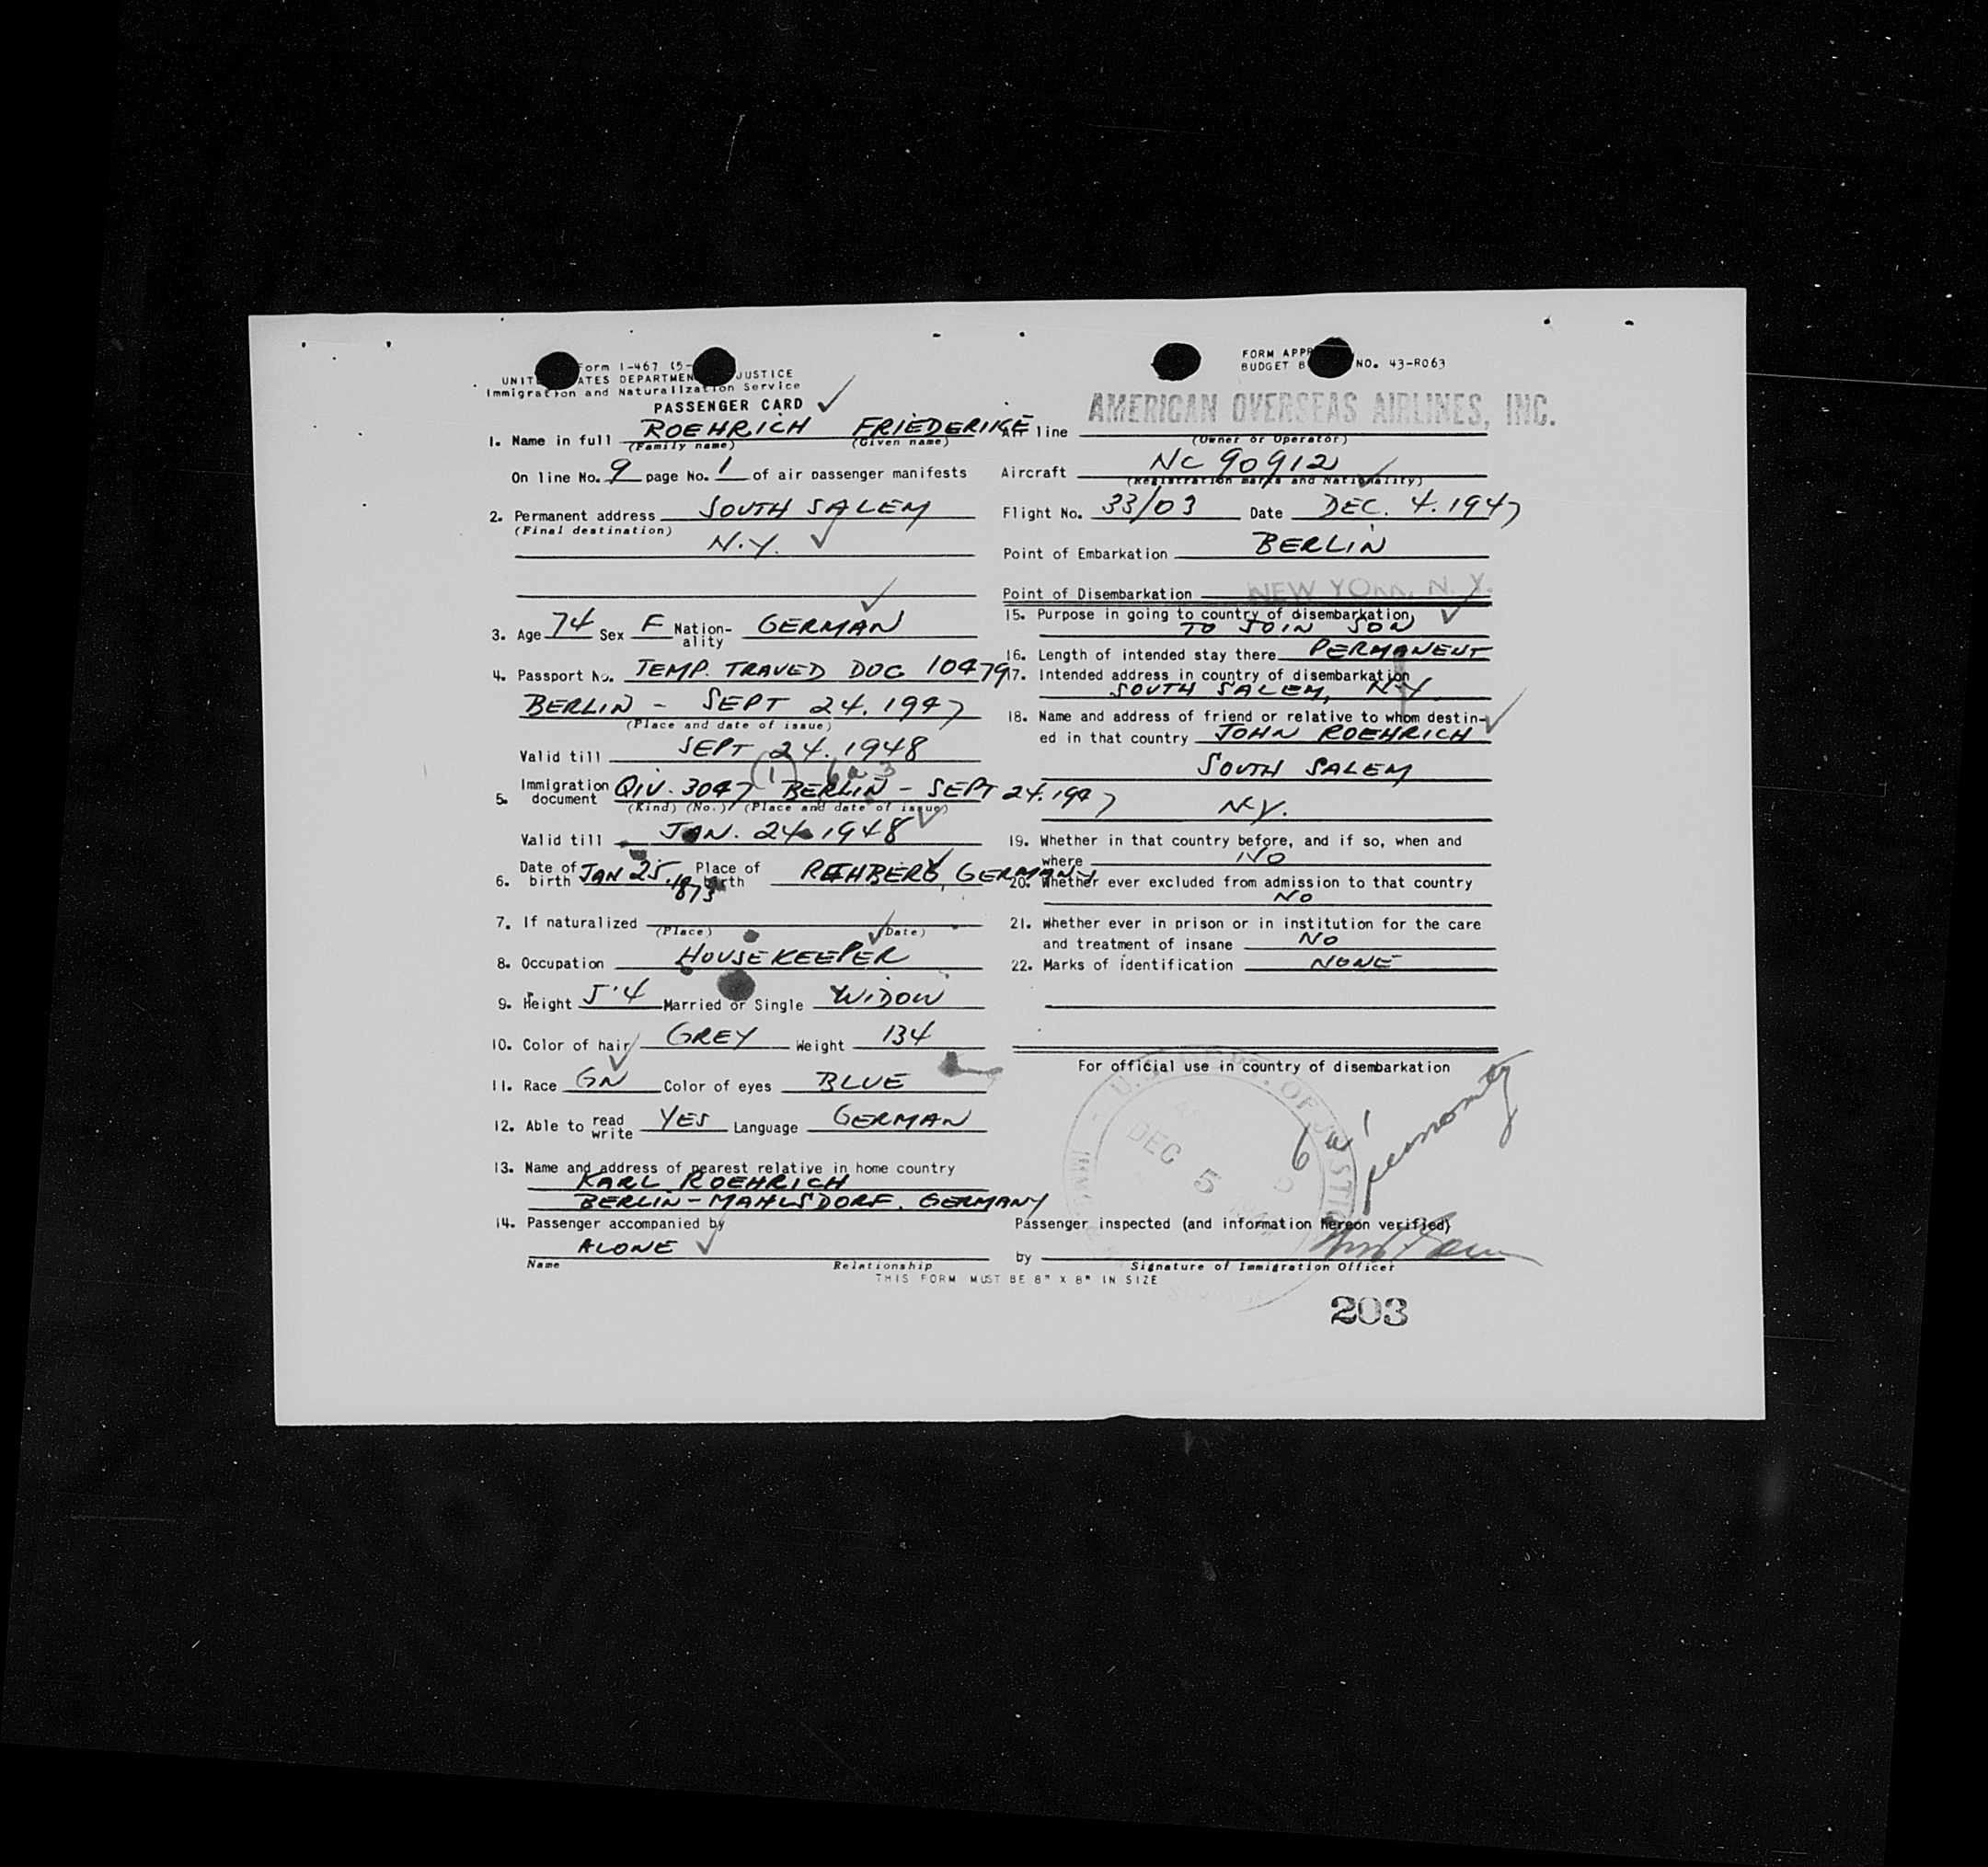 Form I-467 (5-
UNIT ATES DEPARTMEN JUSTICE
Immigration and Naturalization Service
PASSENGER CARD
FORM APP
BUDGET B NO. 43-R063
AMERICAN OVERSEAS AIRLINES, INC.
1. Name in full ROEHRICH FRIEDERIKE
(Family name) (Given name)
On line No. 9 page No. 1 of air passenger manifests
2. Permanent address SOUTH SALEM
(Final destination)
N.Y.
3. Age 74 Sex F Nation-ality GERMAN
4. Passport No. TEMP. TRAVED DOC 10479
BERLIN - SEPT 24. 1947
(Place and date of issue)
Valid till SEPT 24. 1948
(1) 6a3
5. Immigration document QIV. 3047 BERLIN - SEPT 24. 1947
(Kind) (No.) (Place and date of issue)
Valid till JAN. 24 1948
6. Date of birth JAN 25. 1873 Place of birth REHBERG, GERMANY
7. If naturalized
(Place) (Date)
8. Occupation HOUSEKEEPER
9. Height 5'4 Married or Single WIDOW
10. Color of hair GREY Weight 134
11. Race GN Color of eyes BLUE
12. Able to read write YES Language GERMAN
13. Name and address of nearest relative in home country
KARL ROEHRICH
BERLIN-MAHLSDORF. GERMANY
14. Passenger accompanied by
ALONE
Name Relationship
Air line
(Owner or Operator)
Aircraft NC 90912
(Registration marks and Nationality)
Flight No. 33/03 Date DEC. 4. 1947
Point of Embarkation BERLIN
Point of Disembarkation NEW YORK, N. Y.
15. Purpose in going to country of disembarkation
TO JOIN SON
16. Length of intended stay there PERMANENT
17. Intended address in country of disembarkation
SOUTH SALEM, N.Y
18. Name and address of friend or relative to whom destin-
ed in that country JOHN ROEHRICH
SOUTH SALEM
N.Y.
19. Whether in that country before, and if so, when and
where NO
20. Whether ever excluded from admission to that country
NO
21. Whether ever in prison or in institution for the care
and treatment of insane NO
22. Marks of identification NONE
For official use in country of disembarkation
DEC 5
6a1
Passenger inspected (and information hereon verified)
by
Signature of Immigration Officer
THIS FORM MUST BE 8" X 8" IN SIZE
203